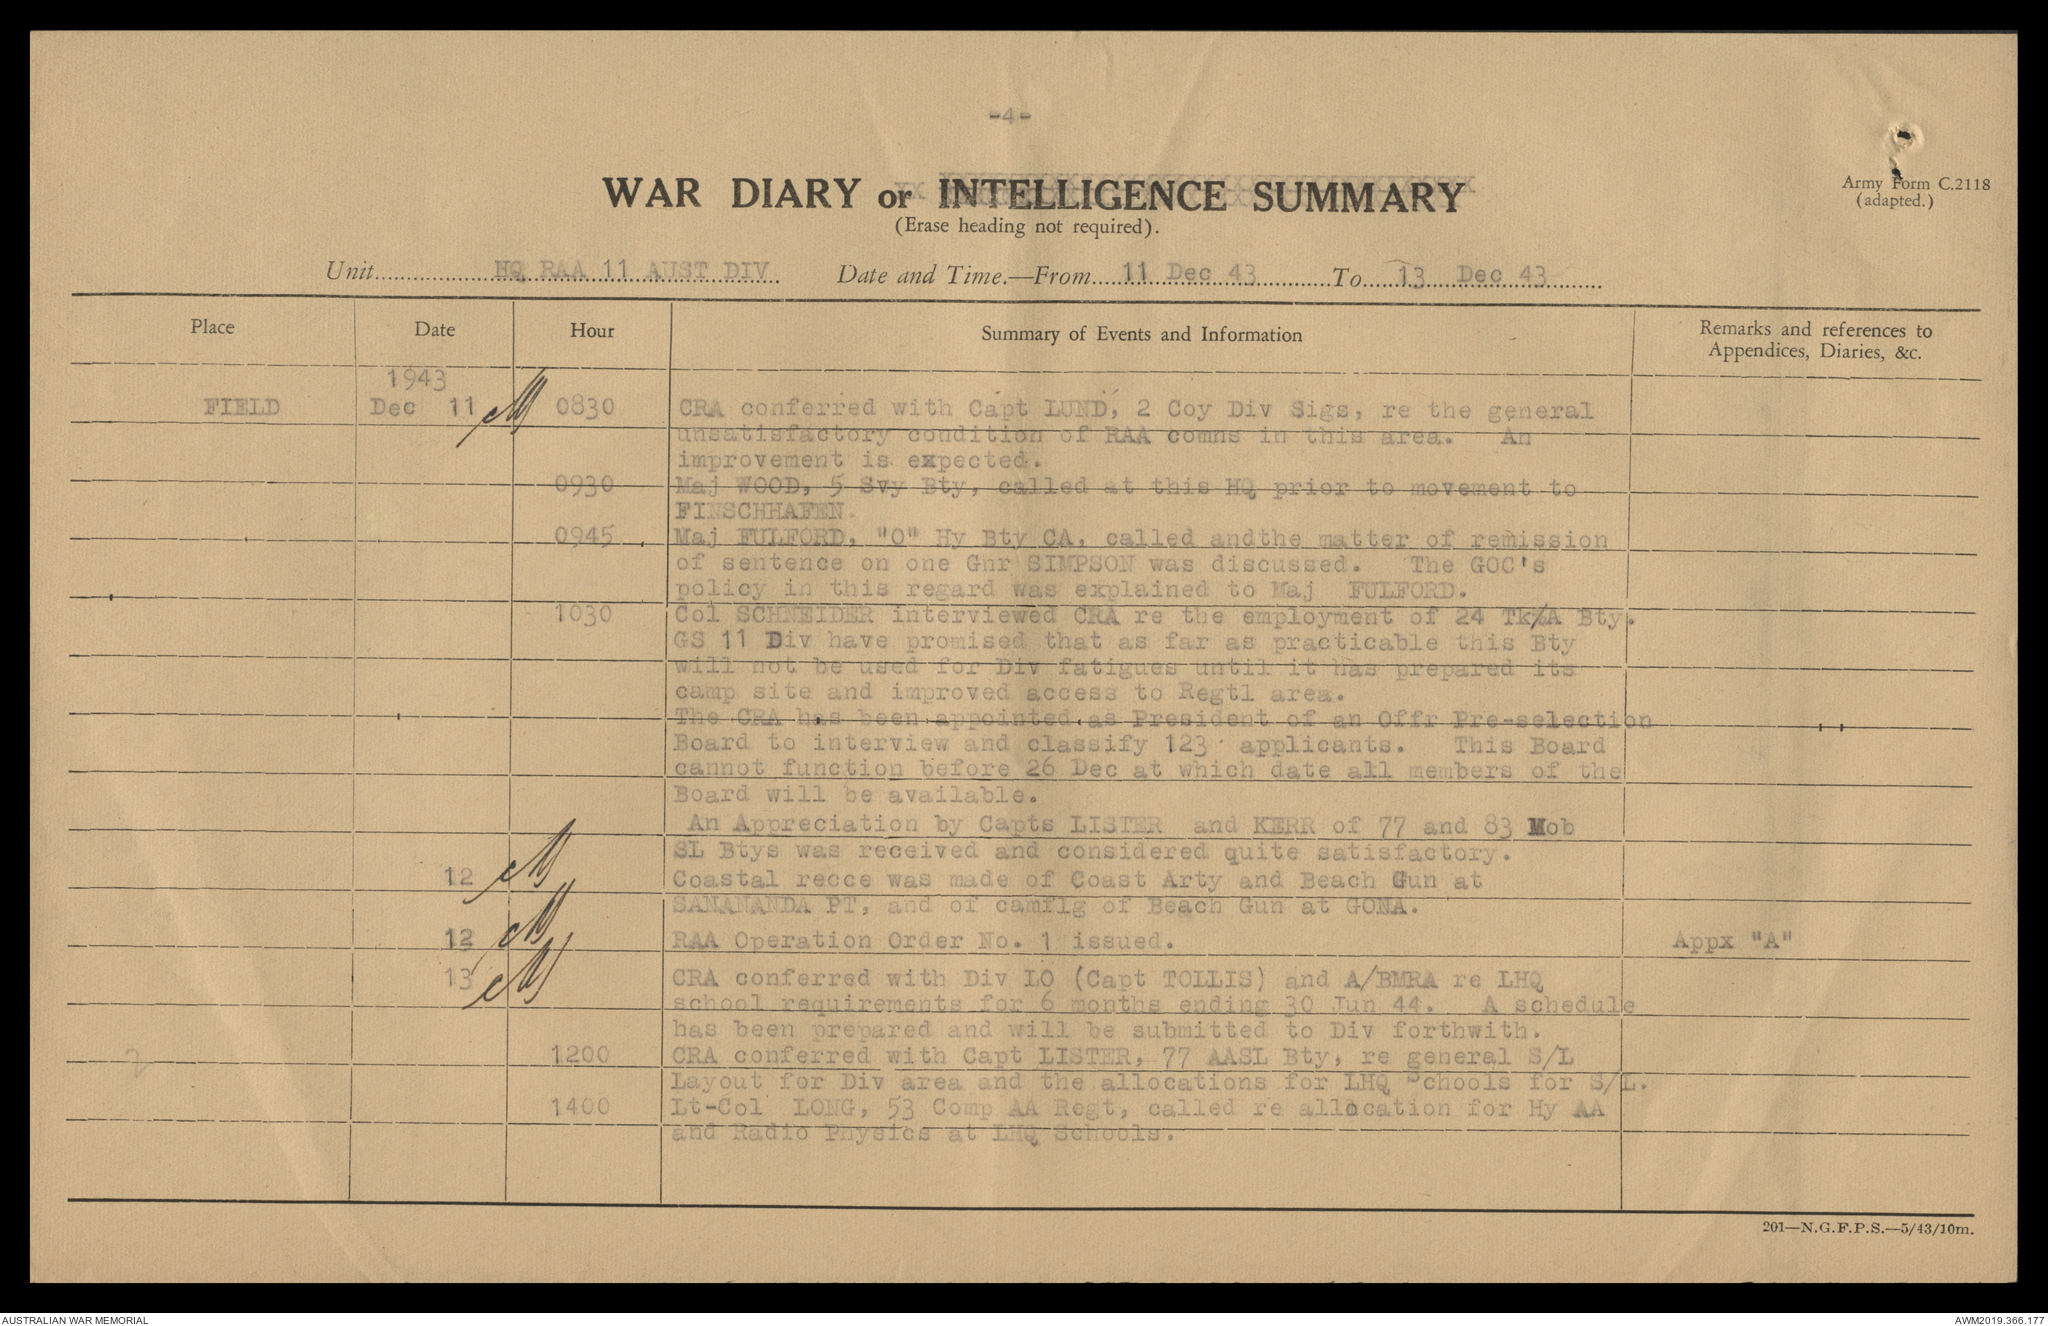 -4-
WAR DIARY or INTELLIGENCE SUMMARY
Army Form C.2118
(adapted.)
(Erase heading not required).
Unit HQ RAA 11 AUST DIV Date and Time.—From 11 Dec 43 To 13 Dec 43
Place Date Hour Summary of Events and Information Remarks and references to
Appendices, Diaries, &c.
1943
FIELD Dec 11 0830 CRA conferred with Capt LUND, 2 Coy Div Sigs, re the general
unsatisfactory condition of RAA comns in this area. An
improvement is expected.
0930 Maj WOOD, 5 Svy Bty, called at this HQ prior to movement to
FINSCHHAFEN.
0945 Maj FULFORD, "O" Hy Bty CA, called andthe matter of remission
of sentence on one Gnr SIMPSON was discussed. The GOC's
policy in this regard was explained to Maj FULFORD.
1030 Col SCHNEIDER interviewed CRA re the employment of 24 Tk/A Bty.
GS 11 Div have promised that as far as practicable this Bty
will not be used for Div fatigues until it has prepared its
camp site and improved access to Regtl area.
The CRA has been appointed as President of an Offr Pre-selection
Board to interview and classify 123 applicants. This Board
cannot function before 26 Dec at which date all members of the
Board will be available.
An Appreciation by Capts LISTER and KERR of 77 and 83 Mob
SL Btys was received and considered quite satisfactory.
12 Coastal recce was made of Coast Arty and Beach Gun at
SANANANDA PT, and of camflg of Beach Gun at GONA.
12 RAA Operation Order No. 1 issued. Appx "A"
13 CRA conferred with Div LO (Capt TOLLIS) and A/BMRA re LHQ
school requirements for 6 months ending 30 Jun 44. A schedule
has been prepared and will be submitted to Div forthwith.
2 1200 CRA conferred with Capt LISTER, 77 AASL Bty, re general S/L
Layout for Div area and the allocations for LHQ Schools for S/L.
1400 Lt-Col LONG, 53 Comp AA Regt, called re allocation for Hy AA
and Radio Physics at LHQ Schools.
201—N.G.F.P.S.—5/43/10m.
AUSTRALIAN WAR MEMORIAL AWM2019.366.177